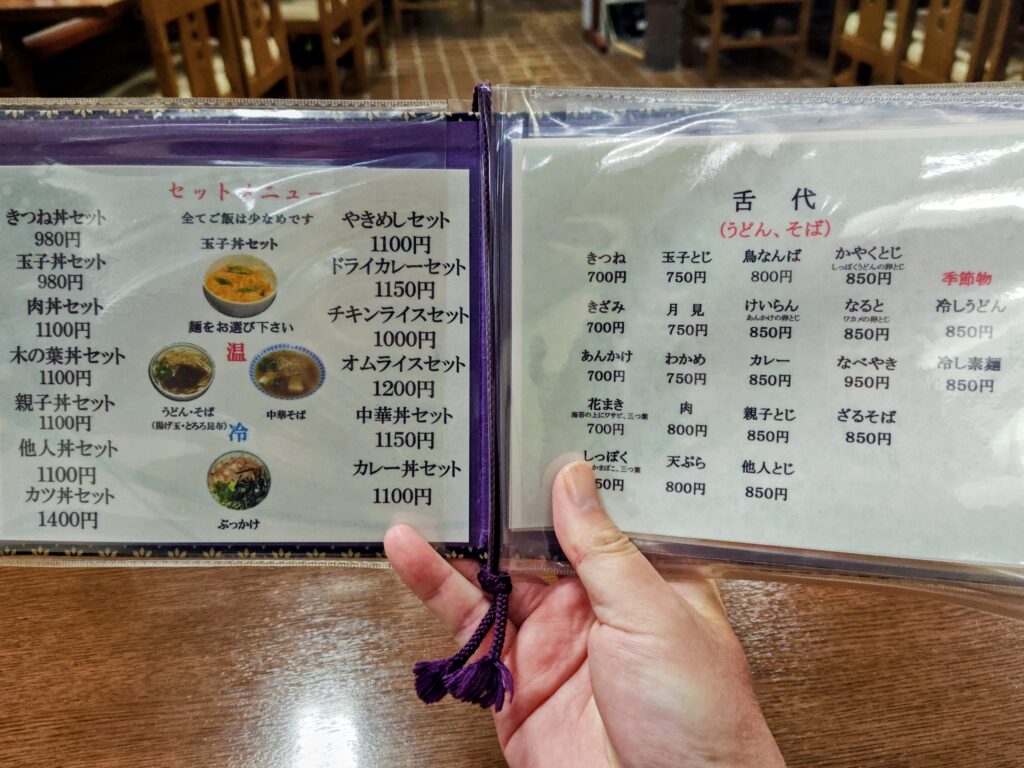 セットメニュー
全てご飯は少なめです
きつね丼セット
980円
玉子丼セット
980円
肉丼セット
1100円
木の葉丼セット
1100円
親子丼セット
1100円
他人丼セット
1100円
カツ丼セット
1400円
玉子丼セット
麺をお選び下さい
温
うどん・そば
(揚げ玉・とろろ昆布)
中華そば
冷
ぶっかけ
やきめしセット
1100円
ドライカレーセット
1150円
チキンライスセット
1000円
オムライスセット
1200円
中華丼セット
1150円
カレー丼セット
1100円
舌代
(うどん、そば)
きつね
700円
きざみ
700円
あんかけ
700円
花まき
海苔の上にワサビ、三つ葉
700円
しっぽく
かまぼこ、三つ葉
50円
玉子とじ
750円
月見
750円
わかめ
750円
肉
800円
天ぷら
800円
鳥なんば
800円
けいらん
あんかけの卵とじ
850円
カレー
850円
親子とじ
850円
他人とじ
850円
かやくとじ
しっぽくうどんの卵とじ
850円
なると
ワカメの卵とじ
850円
なべやき
950円
ざるそば
850円
季節物
冷しうどん
850円
冷し素麺
850円